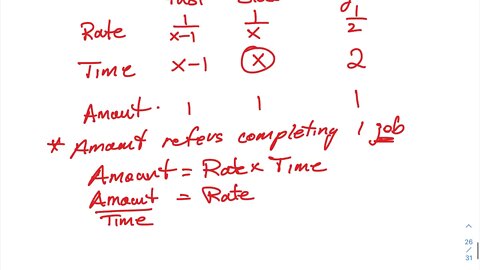 Rate 1/(x-1) 1/x 1/2
Time x-1 x 2
Amount. 1 1 1
* Amount refers completing 1 job
Amount = Rate x Time
Amount/Time = Rate
26
/
31